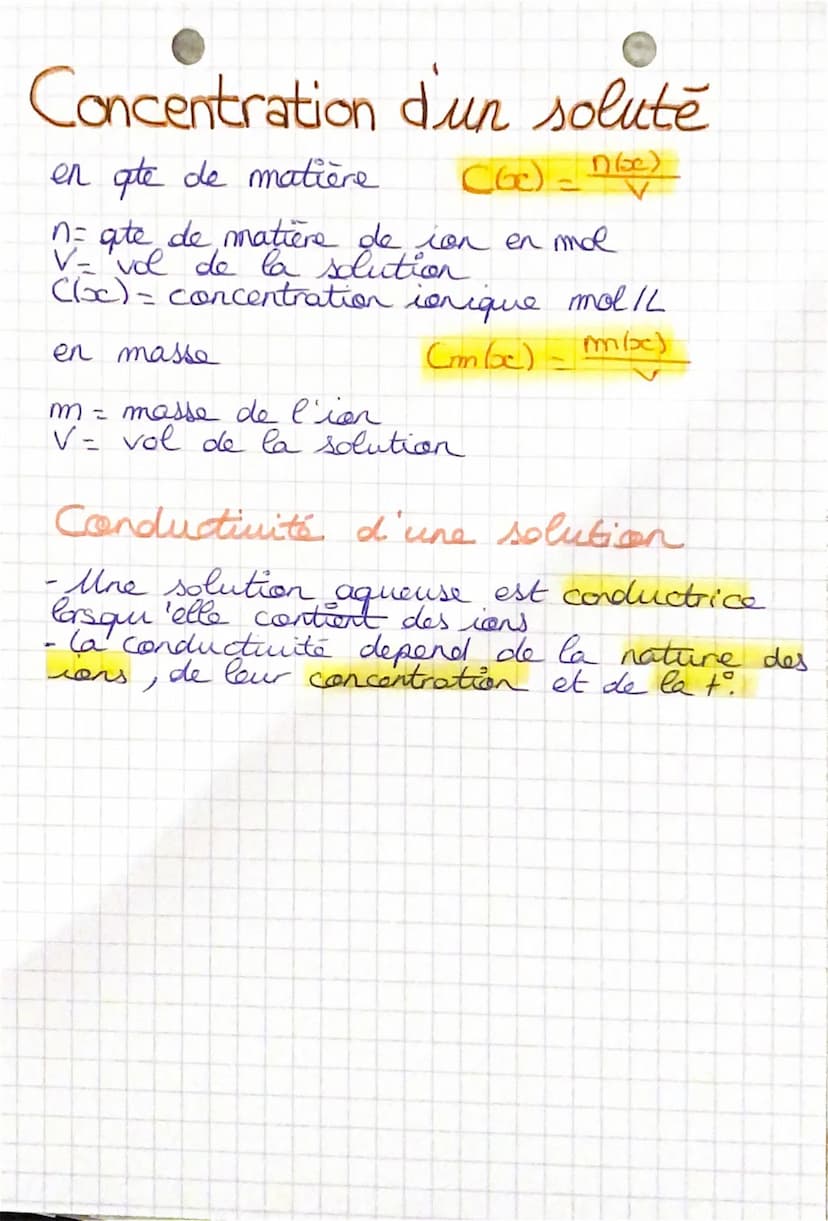 Concentration d'un soluté
en qte de matière C(x) = n(x)/V
n = qte de matière de ion en mol
V = vol de la solution
C(x) = concentration ionique mol/L
en masse Cm(x) = m(x)/V
m = masse de l'ion
V = vol de la solution
Conductivité d'une solution
- Une solution aqueuse est conductrice
lorsqu'elle contient des ions
- La conductivité depend de la nature des
ions, de leur concentration et de la t°.